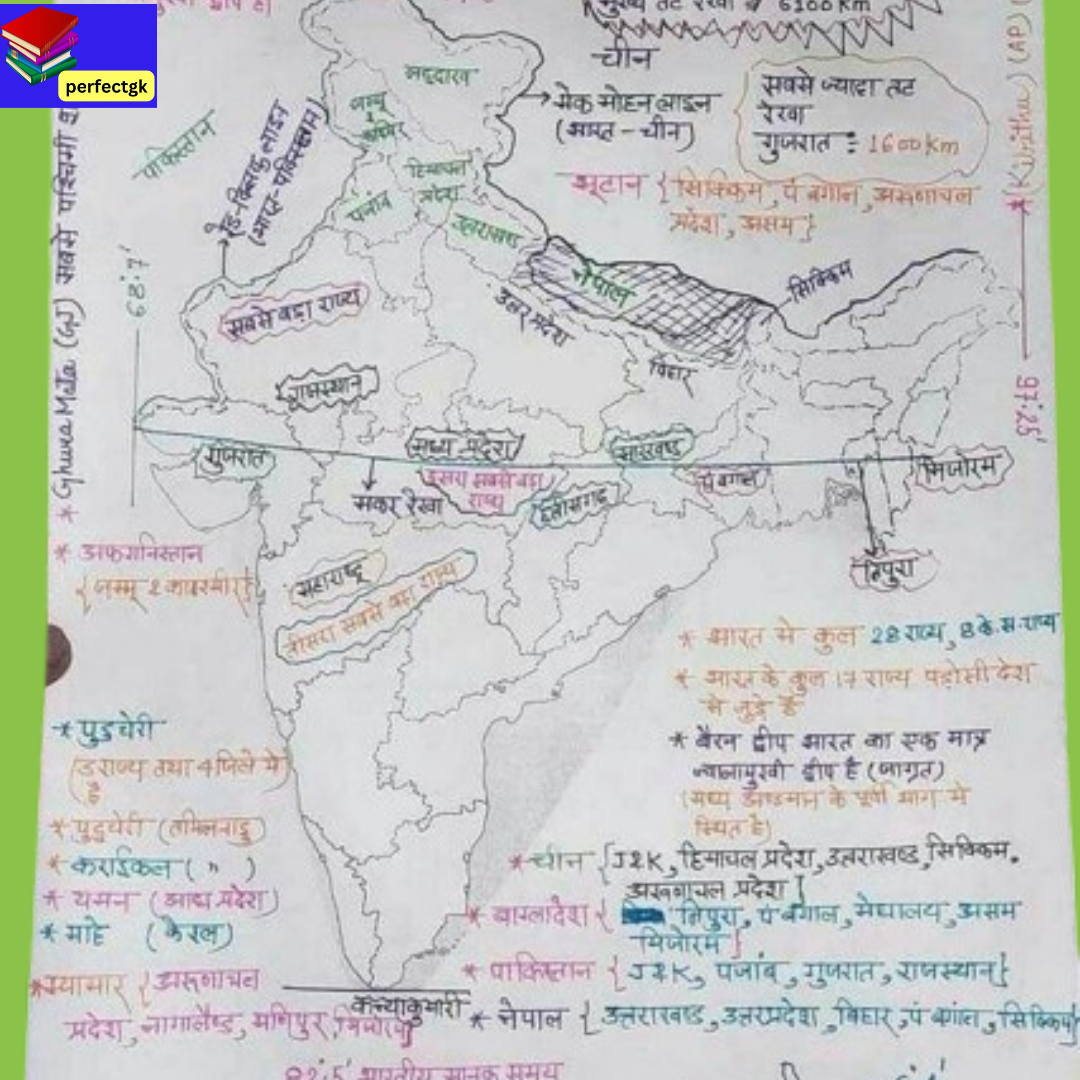 मुख्य तट रेखा
6100 Km
perfectgk
चीन
लद्दाख
जम्मू
कश्मीर
मेक मोहन लाइन
(भारत - चीन)
सबसे ज्यादा तट
रेखा
गुजरात : 1600 Km
* (Kibithu) (AP)
97:25'
पाकिस्तान
रेड-क्लिफ लाइन
(भारत-पाकिस्तान)
हिमाचल
प्रदेश
पंजाब
उत्तराखण्ड
भूटान { सिक्किम, पं बंगाल, अरूणाचल
प्रदेश, असम }
* GhuwaMata (GJ) सबसे पश्चिमी
68:7'
सबसे बड़ा राज्य
नेपाल
सिक्किम
उत्तर प्रदेश
बिहार
राजस्थान
गुजरात
मध्य प्रदेश
झारखण्ड
मिजोरम
मकर रेखा
दूसरा सबसे बड़ा
राज्य
छत्तीसगढ़
पं बंगाल
त्रिपुरा
* अफगानिस्तान
{जम्मू & काश्मीर}
महाराष्ट्र
तीसरा सबसे बड़ा राज्य
* भारत मे कुल 28 राज्य, 8 के.स.राज्य
* भारत के कुल 17 राज्य पड़ोसी देश
से जुड़े हैं
* बैरन द्वीप भारत का एक मात्र
ज्वालामुखी द्वीप है (जाग्रत)
(मध्य अण्डमान के पूर्वी भाग मे
स्थित है)
* पुडुचेरी
(3 राज्य तथा 4 जिले मे
है
* पुडुचेरी (तमिलनाडु)
* कराईकल ( " )
* यमन (आंध्र प्रदेश)
* माहे (केरल)
* चीन { J&K, हिमाचल प्रदेश, उत्तराखण्ड, सिक्किम.
अरूणाचल प्रदेश }
* बाग्लादेश { त्रिपुरा, पं बंगाल, मेघालय, असम
मिजोरम }
* पाकिस्तान { J&K, पंजाब, गुजरात, राजस्थान }
* म्यामार { अरूणाचल
प्रदेश, नागालैण्ड, मणिपुर, मिजोरम }
कन्याकुमारी
* नेपाल { उत्तराखण्ड, उत्तरप्रदेश, बिहार, पं बंगाल, सिक्किम }
82:5' भारतीय मानक समय